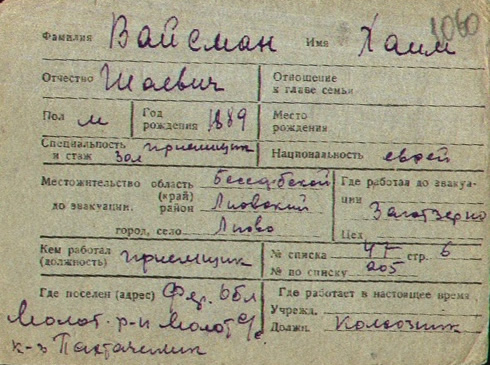 1060
Фамилия Вайсман Имя Хаим
Отчество Шаевич Отношение
к главе семьи
Пол м Год
рождения 1889 Место
рождения
Специальность
и стаж приемщик
Зол Национальность еврей
Местожительство область
(край)
до эвакуации. район Леовский
город, село Леово
Где работал до эвакуа-
ции Заготзерно
Цех
Кем работал
(должность) приемщик
№ списка 47 стр. 6
№ по списку 205
Где поселен (адрес) Фер. Обл
Молот. р-н Молот с/с
к-з Пахтачелик
Где работает в настоящее время
Учрежд.
Должн. Колхозник